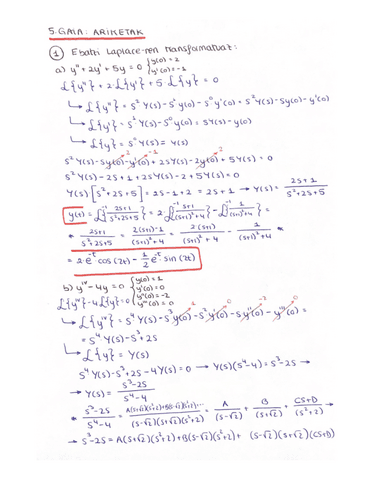 5. GAIA: ARIKETAK
1 Ebatzi Laplace-ren transformatuaz:
a) y'' + 2y' + 5y = 0 { y(0) = 2
y'(0) = -1
L{y''} + 2·L{y'} + 5·L{y} = 0
↳ L{y''} = s² Y(s) - s¹ y(0) - s⁰ y'(0) = s² Y(s) - sy(0) - y'(0)
↳ L{y'} = s¹ Y(s) - s⁰ y(0) = sY(s) - y(0)
↳ L{y} = s⁰ Y(s) = Y(s)
s² Y(s) - sy(0) - y'(0) + 2sY(s) - 2y(0) + 5Y(s) = 0
s² Y(s) - 2s + 1 + 2sY(s) - 2 + 5Y(s) = 0
Y(s) [s² + 2s + 5] = 2s - 1 + 2 = 2s + 1 → Y(s) = (2s + 1)/(s² + 2s + 5)
y(t) = L⁻¹{(2s+1)/(s²+2s+5)} = 2·L⁻¹{(s+1)/((s+1)²+4)} - L⁻¹{1/((s+1)²+4)} =
* (2s+1)/(s²+2s+5) = (2(s+1)-1)/((s+1)²+4) = 2·(s+1)/((s+1)²+4) - 1/((s+1)²+4) *
= 2·e⁻ᵗ·cos(2t) - 1/2 e⁻ᵗ·sin(2t)
b) yⁱᵛ - 4y = 0 { y(0) = 1
y'(0) = 0
y''(0) = -2
y'''(0) = 0
L{yⁱᵛ} - 4L{y} = 0
↳ L{yⁱᵛ} = s⁴ Y(s) - s³ y(0) - s² y'(0) - s y''(0) - y'''(0) =
= s⁴ Y(s) - s³ + 2s
↳ L{y} = Y(s)
s⁴ Y(s) - s³ + 2s - 4Y(s) = 0 → Y(s)(s⁴ - 4) = s³ - 2s →
→ Y(s) = (s³ - 2s)/(s⁴ - 4)
(s³ - 2s)/(s⁴ - 4) = A/(s-√2) + B/(s+√2) + (Cs+D)/(s²+2) →
→ s³ - 2s = A(s+√2)(s²+2) + B(s-√2)(s²+2) + (s-√2)(s+√2)(Cs+D)